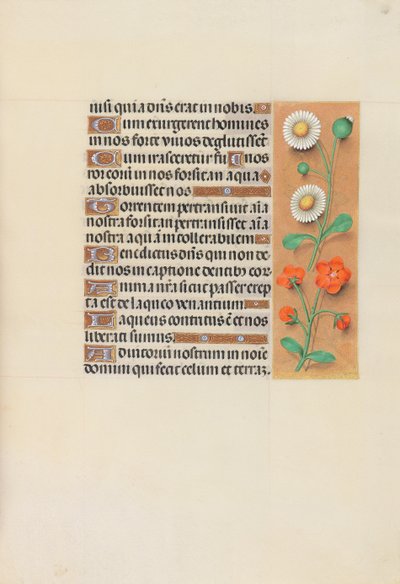 nisi quia dn̄s erat in nobis.
Cum exurgerent homines
in nos forte vivos deglutissēt
Cum irasceretur fu eoȝ in nos
forsitan aqua
absorbuisset nos
Torrentem pertransivit aīa
nostra forsitan pertransisset aīa
nostra aquā intollerabilem
Benedictus dn̄s qui non de
dit nos in captionē dentibȝ eor
Anima nr̄a sicut passer erep
ta est de laqueo venantium
Laqueus contritus ē et nos
liberati sumus
Adiutoriū nostrum in noīe
domini qui fecit celum et terrā.